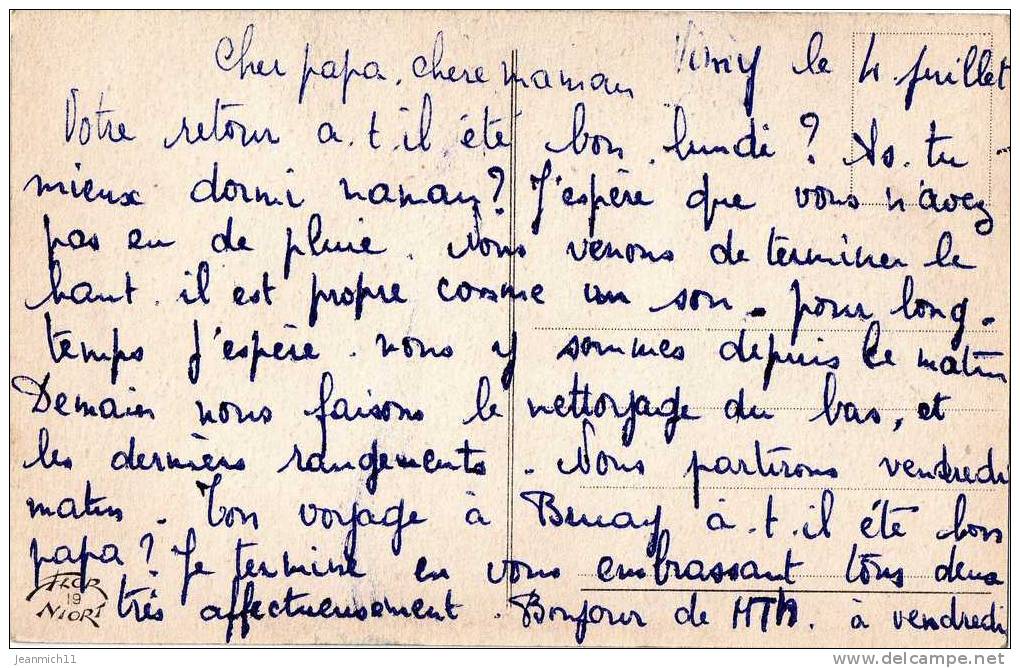 Vimy le 4 juillet
Cher papa, chere maman
Votre retour a.t.il été bon lundi ? As.tu
mieux dormi maman ? J'espère que vous n'avez
pas eu de pluie. Nous venons de terminer le
haut. il est propre comme un sou _ pour long_
temps j'espère. nous y sommes depuis ce matin
Demain nous faisons le nettoyage du bas, et
les derniers rangements. Nous partirons vendredi
matin. Ton voyage à Bruay a.t.il été bon
papa ? Je termine en vous embrassant tous deux
très affectueusement. Bonjour de MTH. à vendredi
FLOR
19
NIORT
jeanmich11
http://www.delcampe.net